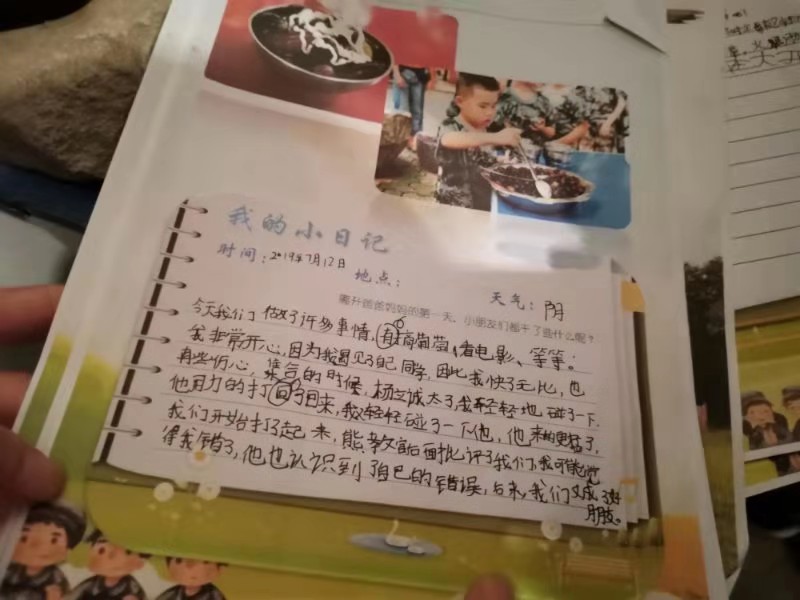 我的小日记
时间：2019年7月12日 地点： 天气：阴
离开爸爸妈妈的第一天，小朋友们都干了些什么呢？
今天我们做了许多事情，有摘葡萄、看电影、等等：
我非常开心，因为我遇见了自己同学，因此我快了无比，也
有些伤心，集合的时候，杨立诚太了我轻轻地碰了一下，
他用力的打回了回来，我轻轻碰了一下他，他来的更猛了，
我们开始打了起来，熊教官后面批评了我们，我可能觉
得我错了，他也认识到了自己的错误，后来，我们又成了好
朋友。